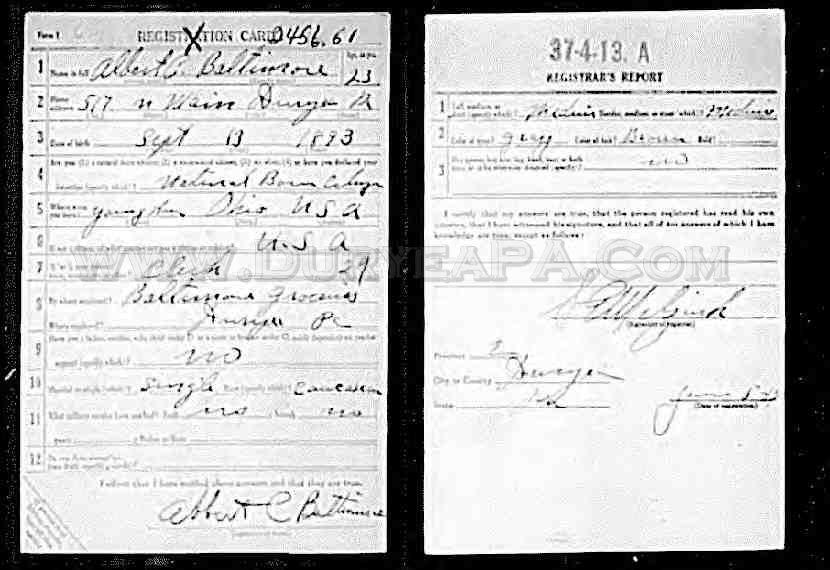 Form 1 REGISTRATION CARD 2456. 61
1 Name in full Albert C. Baltimore Age, in yrs. 23
2 Home address 517 N Main Duryea Pa
3 Date of birth Sept 13 1893
4 Are you (1) a natural born citizen, (2) a naturalized citizen, (3) an alien, (4) or have you declared your
intention (specify which)? Natural Born
5 Where were you born? Ohio U S A
6 If not a citizen, of what country are you a citizen or subject? U. S A
7 Clerk 29
8 By whom employed? Baltimore
Where employed? Duryea Pa
9 Have you a father, mother, wife, child under 12, or a sister or brother under 12, solely dependent on you for
support (specify which)? no
10 Married or single (which)? Single Race (specify which)? Caucasian
11 What military service have you had? Rank no ; branch no
years ; Nation or State
12
I affirm that I have verified above answers and that they are true.
Albert C Baltimore
37-4-13. A
REGISTRAR'S REPORT
1 Tall, medium, or short (specify which)? Medium Slender, medium, or stout (which)? Medium
2 Color of eyes? Gray Color of hair? Brown Bald?
3 Has person lost arm, leg, hand, foot, or both no
I certify that my answers are true, that the person registered has read his own
answers, that I have witnessed his signature, and that all of his answers of which I have
knowledge are true, except as follows:
WWW.DURYEAPA.COM
(Signature of registrar)
Precinct 2
City or County Duryea
State Pa June
(Date of registration)